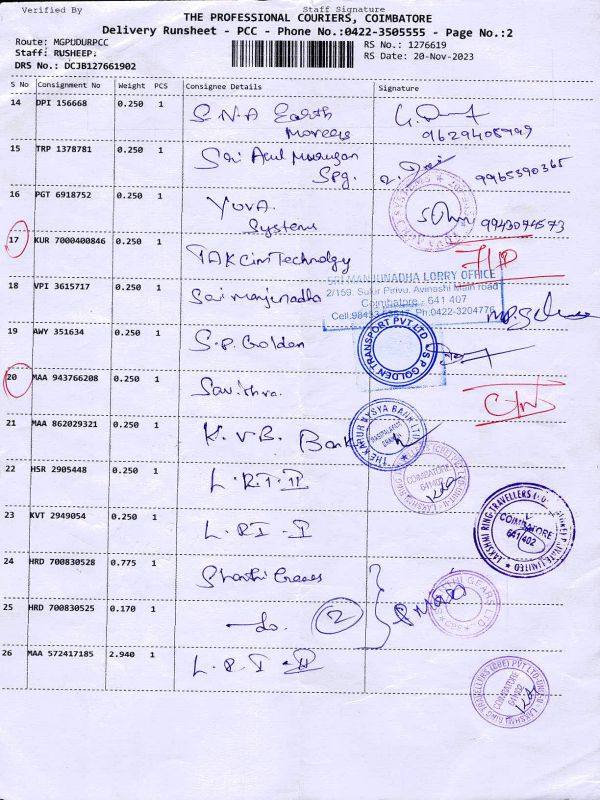 Verified By Staff Signature
THE PROFESSIONAL COURIERS, COIMBATORE
Delivery Runsheet - PCC - Phone No.:0422-3505555 - Page No.:2
Route: MGPUDURPCC
Staff: RUSHEEP.
DRS No.: DCJB127661902
RS No.: 1276619
RS Date: 20-Nov-2023
S No Consignment No Weight PCS Consignee Details Signature
14 DPI 156668 0.250 1 S.N.A Earth
Movers
9629408949
15 TRP 1378781 0.250 1 Sri Arul Murugan
Spg.
9965390365
16 PGT 6918752 0.250 1 YUVA
Systems
9943074573
17 KUR 7000400846 0.250 1 TAK Cim Technology
18 VPI 3615717 0.250 1 Sai Manjunadha
SRI MANJUNADHA LORRY OFFICE
2/159, Sulur Pirivu, Avinashi Main road
Coimbatore - 641 407
Ph:0422-3204776
19 AWY 351634 0.250 1 S.P. Golden
S P GOLDEN TRANSPORT PVT LTD
20 MAA 943766208 0.250 1 Savithra.
21 MAA 862029321 0.250 1 K.V.B. Bank
THE KARUR VYSYA BANK LTD
22 HSR 2905448 0.250 1 L.R.T. II
COIMBATORE
641 402
23 KVT 2949054 0.250 1 L.R.T - I
LAKSHMI RING TRAVELLERS
COIMBATORE
641 402
24 HRD 700830528 0.775 1 Shanthi Gears
SHANTHI GEARS LTD
25 HRD 700830525 0.170 1 -do. 2
26 MAA 572417185 2.940 1 L.R.T - II
LAKSHMI RING TRAVELLERS (CBE) PVT LTD-UNIT-II
COIMBATORE
641 402